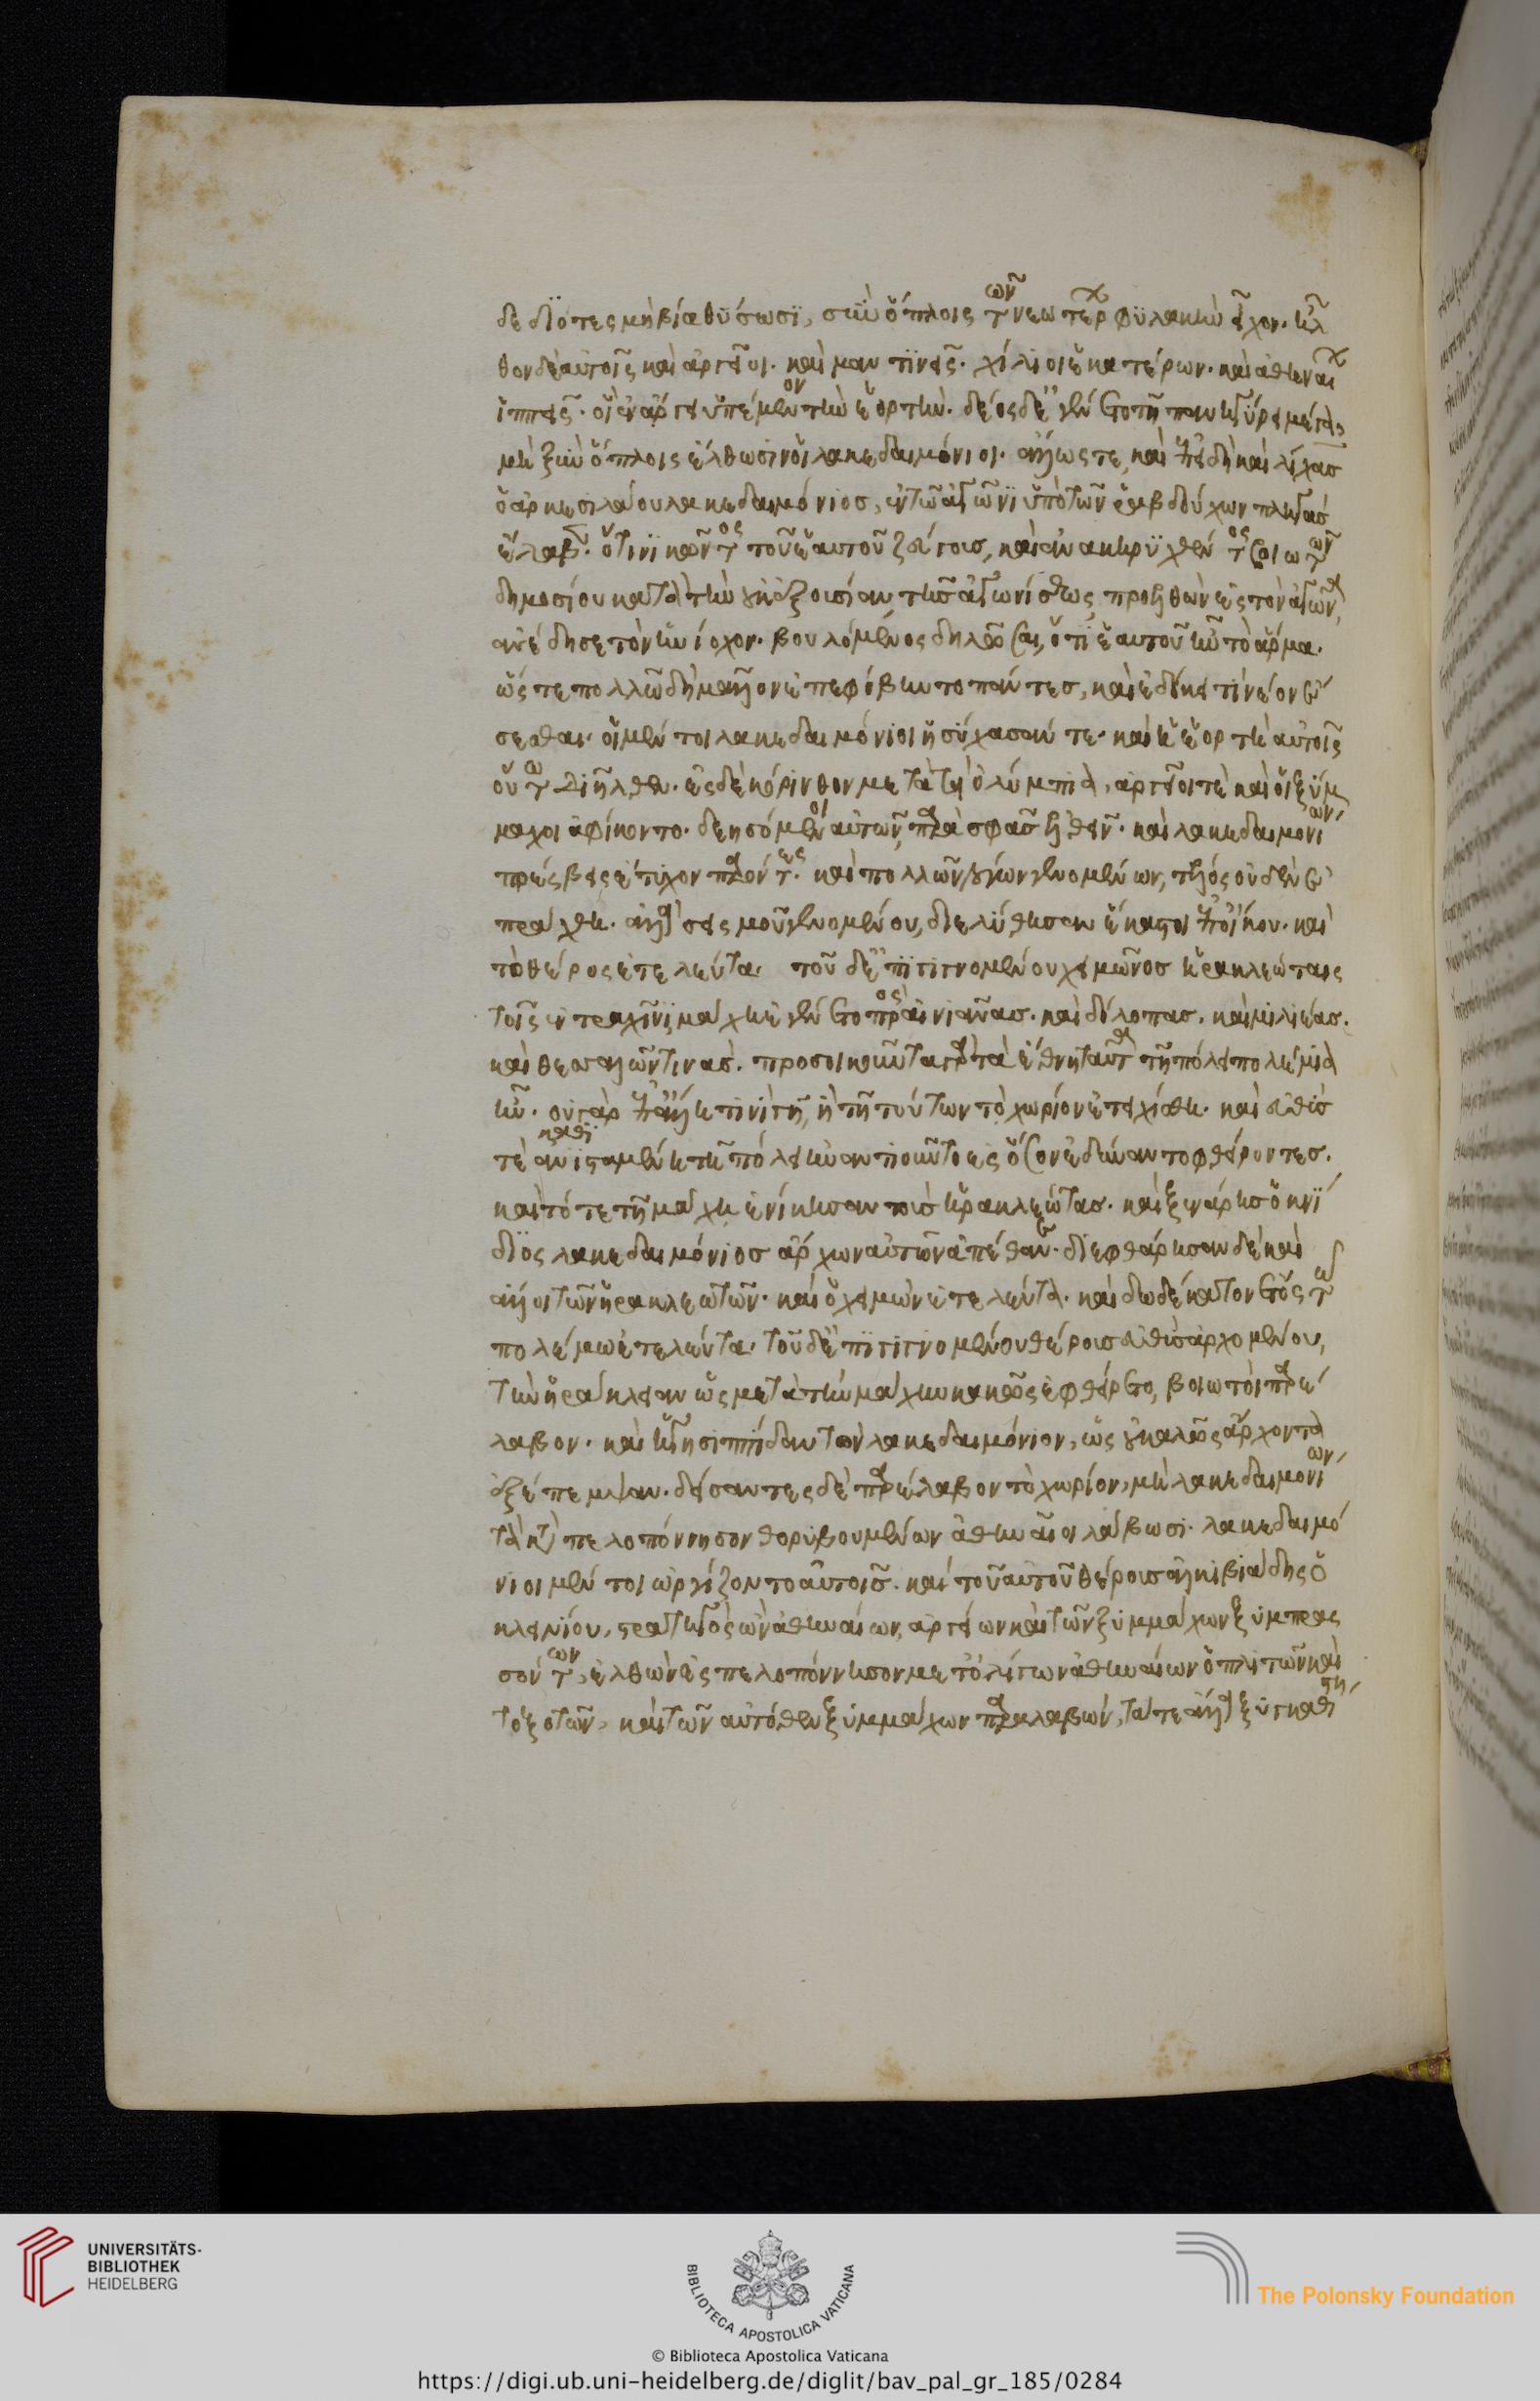 δεδϊότες μὴ βία θϋσωσϊ, σὺν ὅπλοις τῶν νεωτέρων φϋλακὴν εἶχον. ἦλ
θον δὲ αὐτοῖς καὶ ἀργεῖοι. καὶ μαντϊνεῖς. χίλιοι ἑκατέρων. καὶ ἀθηναίων
ἱππεῖς. οἳ ἐν ἄργει ὑπέμενον τὴν ἑορτήν. δέος δ' ἐγένετο τῆ πανηγύρει μέγα,
μὴ ξὺν ὅπλοις ἔλθωσιν οἱ λακεδαιμόνιοι. ἄλλως τε, καὶ ἐπειδὴ καὶ λίχασ
ὁ ἀρκεσιλάου λακεδαιμόνιοσ, ἐν τῶ ἀγῶνϊ ὑπὸ τῶν ῥαβδούχων πληγὰσ
ἔλαβεν. ὅτι νϊκῶντος τοῦ ἑαυτοῦ ζεύγουσ, καὶ ἀνακηρϋχθέντος βοιωτῶν
δημοσίου κατὰ τὴν οὐκ ἐξουσίαν τῆσ ἀγωνίσεως προελθὼν ἐς τὸν ἀγῶνα,
ἀνέδησε τὸν ἡνίοχον. βουλόμενος δηλῶσαι, ὅτι ἑαυτοῦ ἦν τὸ ἅρμα.
ὥςτε πολλῶ δὴ μᾶλλον ἐπεφόβηντο πάντεσ, καὶ ἐδόκει τι νέον ἔ
σεσθαι. οἱ μέντοι λακεδαιμόνιοι ἡσύχασάν τε. καὶ ἡ ἑορτὴ αὐτοῖς
οὕτω διῆλθεν. ἐς δὲ κόρινθον μετὰ τὰ ὀλύμπια, ἀργεῖοί τε καὶ οἱ ξύμ
μαχοι ἀφίκοντο. δεησόμενοι αὐτῶν, παρὰ σφᾶσ ἐλθεῖν. καὶ λακεδαιμονίων
πρέςβεις ἔτυχον παρόντες. καὶ πολλῶν λόγων γενομένων, τέλος οὐδὲν ἐ
πράχθη. ἀλλὰ σεισμοῦ γενομένου, διελύθησαν ἕκαστοι ἐπ' οἴκου. καὶ
τὸ θέρος ἐτελεύτα. τοῦ δ' ἐπϊγιγνομένου χειμῶνοσ ἡρακλεώταις
τοῖς ἐν τραχῖνϊ μάχη ἐγένετο πρὸς αἰνιᾶνασ. καὶ δόλοπασ. καὶ μιλιέασ.
καὶ θεσσαλῶν τινασ. προσοικοῦντα γὰρ τὰ ἔθνη ταῦτα τῆ πόλει πολέμια
ἦν. οὐ γὰρ ἐπ' ἄλλη τινὶ γῆ, ἢ τῆ τούτων τὸ χωρίον ἐτειχίσθη. καὶ εὐθὺσ
τε καθισταμένη τῆ πόλει ἠναντιοῦντο ἐς ὅσον ἐδύναντο φθείροντεσ.
καὶ τότε τῆ μάχη ἐνίκησαν τοὺσ ἡρακλεώτασ. καὶ ξενάρησ ὁ κνΐ
διος λακεδαιμόνιοσ ἄρχων αὐτῶν ἀπέθανε. διεφθάρησαν δὲ καὶ
ἄλλοι τῶν ἡρακλεωτῶν. καὶ ὁ χειμὼν ἐτελεύτα. καὶ δωδέκατον ἔτος τῶ
πολέμω ἐτελεύτα. τοῦ δ' ἐπϊγιγνομένου θέρουσ εὐθὺσ ἀρχομένου,
τὴν ἡράκλειαν ὡς μετὰ τὴν μάχην κακῶς ἐφθείρετο, βοιωτοὶ παρέ
λαβον. καὶ ἡγησιππίδαν τὸν λακεδαιμόνιον, ὡς οὐ καλῶς ἄρχοντα
ἐξέπεμψαν. δείσαντες δὲ παρέλαβον τὸ χωρίον, μὴ λακεδαιμονίων
τὰ κατὰ πελοπόννησον θορυβουμένων ἀθηναῖοι λάβωσι. λακεδαιμό
νιοι μέντοι ὠργίζοντο αὐτοῖσ. καὶ τοῦ αὐτοῦ θέρουσ ἀλκιβιάδης ὁ
κλεινίου, στρατηγὸς ὢν ἀθηναίων, ἀργείων καὶ τῶν ξυμμάχων ξυμπρας
σόντων, ἐλθὼν ἐς πελοπόννησον μετ' ὀλίγων ἀθηναίων ὁπλιτῶν καὶ
τοξοτῶν, καὶ τῶν αὐτόθεν ξυμμάχων παραλαβών, τά τε ἄλλα ξυγκαθίστη
UNIVERSITÄTS-
BIBLIOTHEK
HEIDELBERG
BIBLIOTECA APOSTOLICA VATICANA
The Polonsky Foundation
© Biblioteca Apostolica Vaticana
https://digi.ub.uni-heidelberg.de/diglit/bav_pal_gr_185/0284